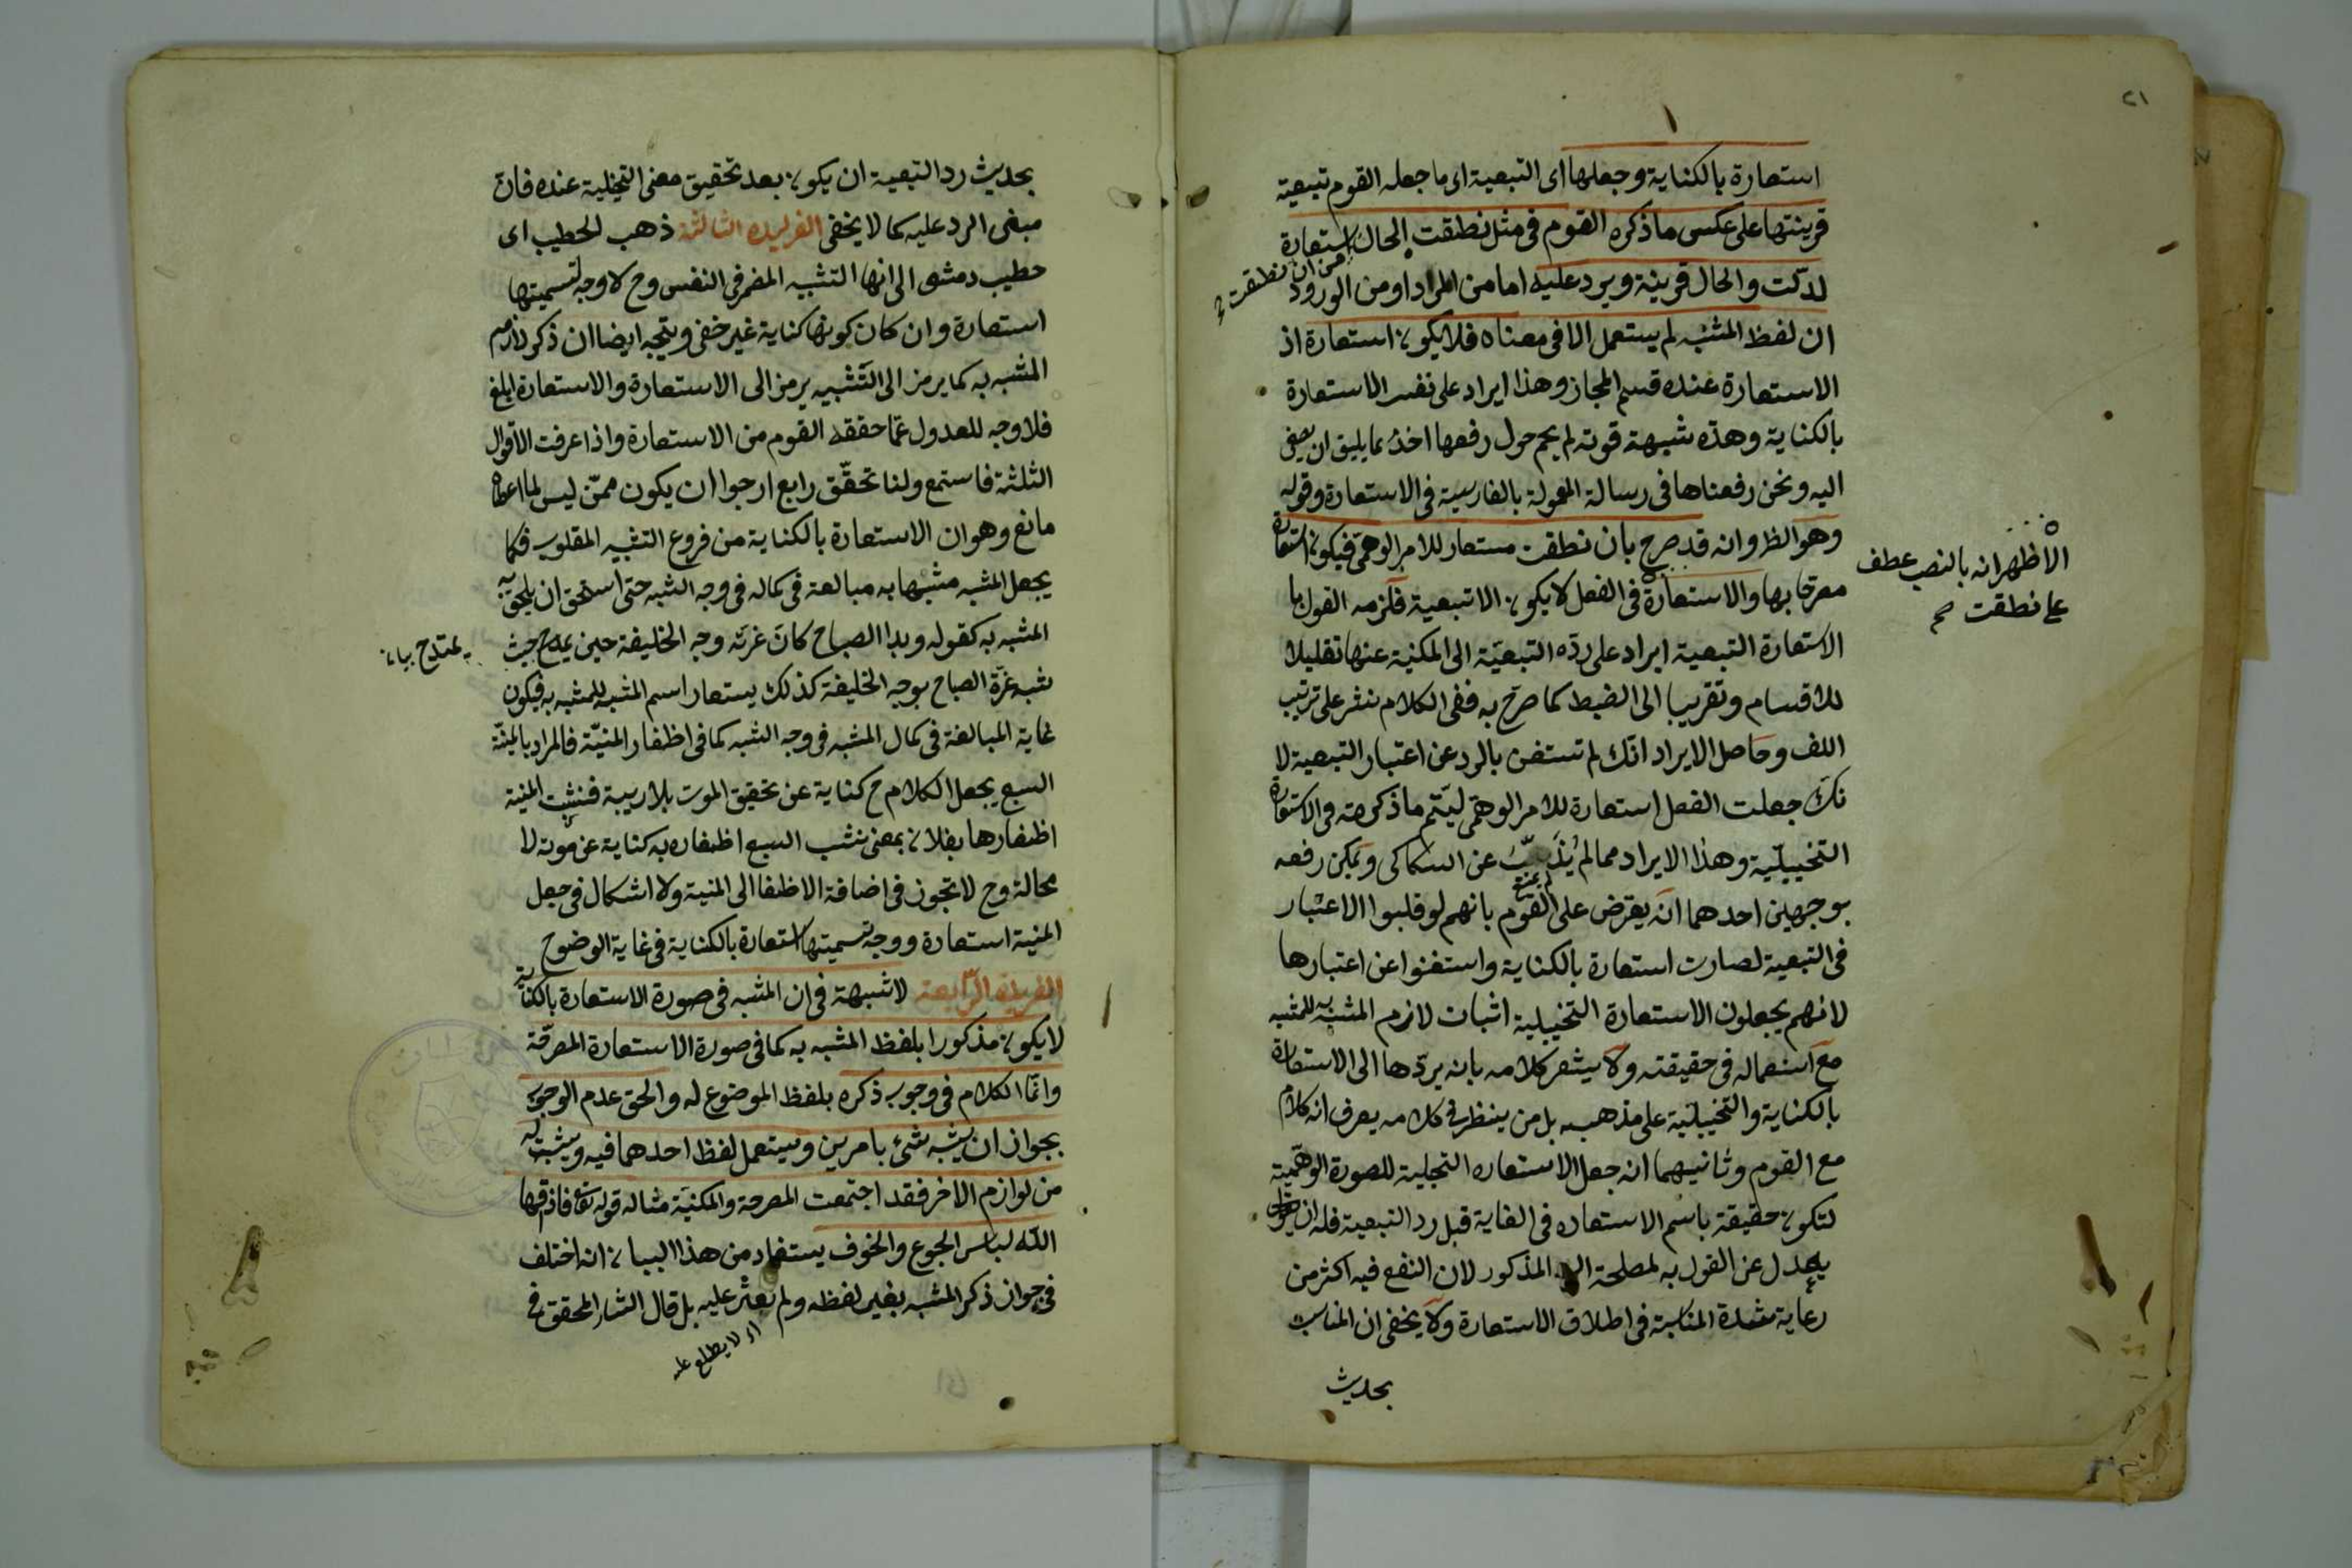 ٢١
استعارة بالكناية وجعلها اى التبعية اى ما جعله القوم تبعية
قرينتها على عكس ما ذكره القوم فى مثل نطقت الحال استعارة
من ان نطقت
لدلّت والحال قرينة ويرد عليه اما من المراد او من الورود
ان لفظ المشبه لم يستعمل الا فى معناه فلا يكون استعارة اذ
الاستعارة عنده قسم المجاز وهذا ايراد على نفس الاستعارة
بالكناية وهذه شبهة قوته لم يحم حول رفعها احد بما يليق ان يصغى
اليه ونحن رفعناها فى رسالة المعولة بالفارسية فى الاستعارة وقوله
وهو الظ وانه قد صرح بان نطقت مستعار للامر الوهمى فيكون استعارة
الاظهر انه بالنصب عطف
على نطقت
مصرحا بها والاستعارة فى الفعل لا يكون الا تبعية فلزمه القول با
الاستعارة التبعية ايراد على ردّه التبعيّة الى المكنية عنها تقليلا
للاقسام وتقريبا الى الضبط كما صرّح به ففى الكلام نشر على ترتيب
اللف وحاصل الايراد انّك لم تستغن بالرد عن اعتبار التبعية لا
نّك جعلت الفعل استعارة للامر الوهمّى ليتّم ما ذكرته فى الاستعارة
التخييليّة وهذا الايراد مما لم يُذَبّ عن السكاكى ويمكن رفعه
بوجهين احدهما انّه يعترض على القوم بانهم لو قلبوا الاعتبار
فى التبعية لصارت استعارة بالكناية واستغنوا عن اعتبارها
لانهم يجعلون الاستعارة التخييلية اثبات لازم المشبه به للمشبه
مع استعماله فى حقيقته ولا يشعر كلامه بانه يردّها الى الاستعارة
بالكناية والتخييليّة على مذهبه بل من ينظر فى كلامه يعرف انه كلام
مع القوم وثانيهما ان جعل الاستعاره التخيلية للصورة الوهّمية
لتكون حقيقة باسم الاستعاره فى الغاية قبل رد التبعية فله ان
يعدل عن القول به لمصلحة المذكور لان النفع فيه اكثر من
رعاية شدة المناسبة فى اطلاق الاستعارة ولا يخفى ان المناسب
بحديث
بحديث رد التبعية ان يكون بعد تحقيق معنى التخيلية عنده فانّ
مبنى الرد عليه كما لا يخفى الفريده الثالثة ذهب الخطيب اى
خطيب دمشق الى انها التشبيه المضمر فى النفس وح لا وجه لتسميتها
استعارة وان كان كونها كناية غير خفى ويتجه ايضا ان ذكر لازم
المشبه به كما يرمز الى التّشبيه يرمز الى الاستعارة والاستعارة ابلغ
فلا وجه للعدول عمّا حققه القوم من الاستعارة واذا عرفت الاقوال
الثلثة فاستمع ولنا تحقّق رابع ارجوا ان يكون ممّن ليس لما اعطاه
مانع وهو ان الاستعارة بالكناية من فروع التشبيه المقلوب فكما
يجعل المشبه مشبها به مبالغة فى كماله فى وجه الشبه حتى استحق ان يلحق به
المشبه به كقوله وبدا الصباح كانّ غرته وجه الخليفة حين يمدح حيث
يمتدح بيان
شبه غرّة الصباح بوجه الخليفة كذلك يستعار اسم المشبه للمشبه به فيكون
غاية المبالغة فى كمال المشبه فى وجه الشبه كما فى اظفار المنيّة فالمراد بالمنيّة
السبع بجعل الكلام ح كناية عن تحقيق الموت بلا ريبة فنشبت المنية
اظفارها بفلان بمعنى نشب السبع اظفاره به كناية عن موته لا
محالة وح لا تجوز فى اضافة الاظفا الى المنية ولا اشكال فى جعل
المنية استعارة ووجه تسميتها استعارة بالكناية فى غاية الوضوح
الفريدة الرّابعة لا شبهة فى ان المشبه فى صورة الاستعارة بالكناية
لا يكون مذكورا بلفظ المشبه به كما فى صورة الاستعارة المصرّحة
وانّما الكلام فى وجوب ذكره بلفظ الموضوع له والحق عدم الوجوب
بجواز ان يشبه شىء بامرين ويستعمل لفظ احدهما فيه ويثبت له
من لوازم الاخر فقد اجتمعت المصرحة والمكنيّة مثاله قوله تعا فاذاقها
اللّه لباس الجوع والخوف يستفاد من هذا البيان انه اختلف
فى جواز ذكر المشبه بغير لفظه ولم نعثر عليه بل قال الشار المحقق فى
اى لا يطلع عليه